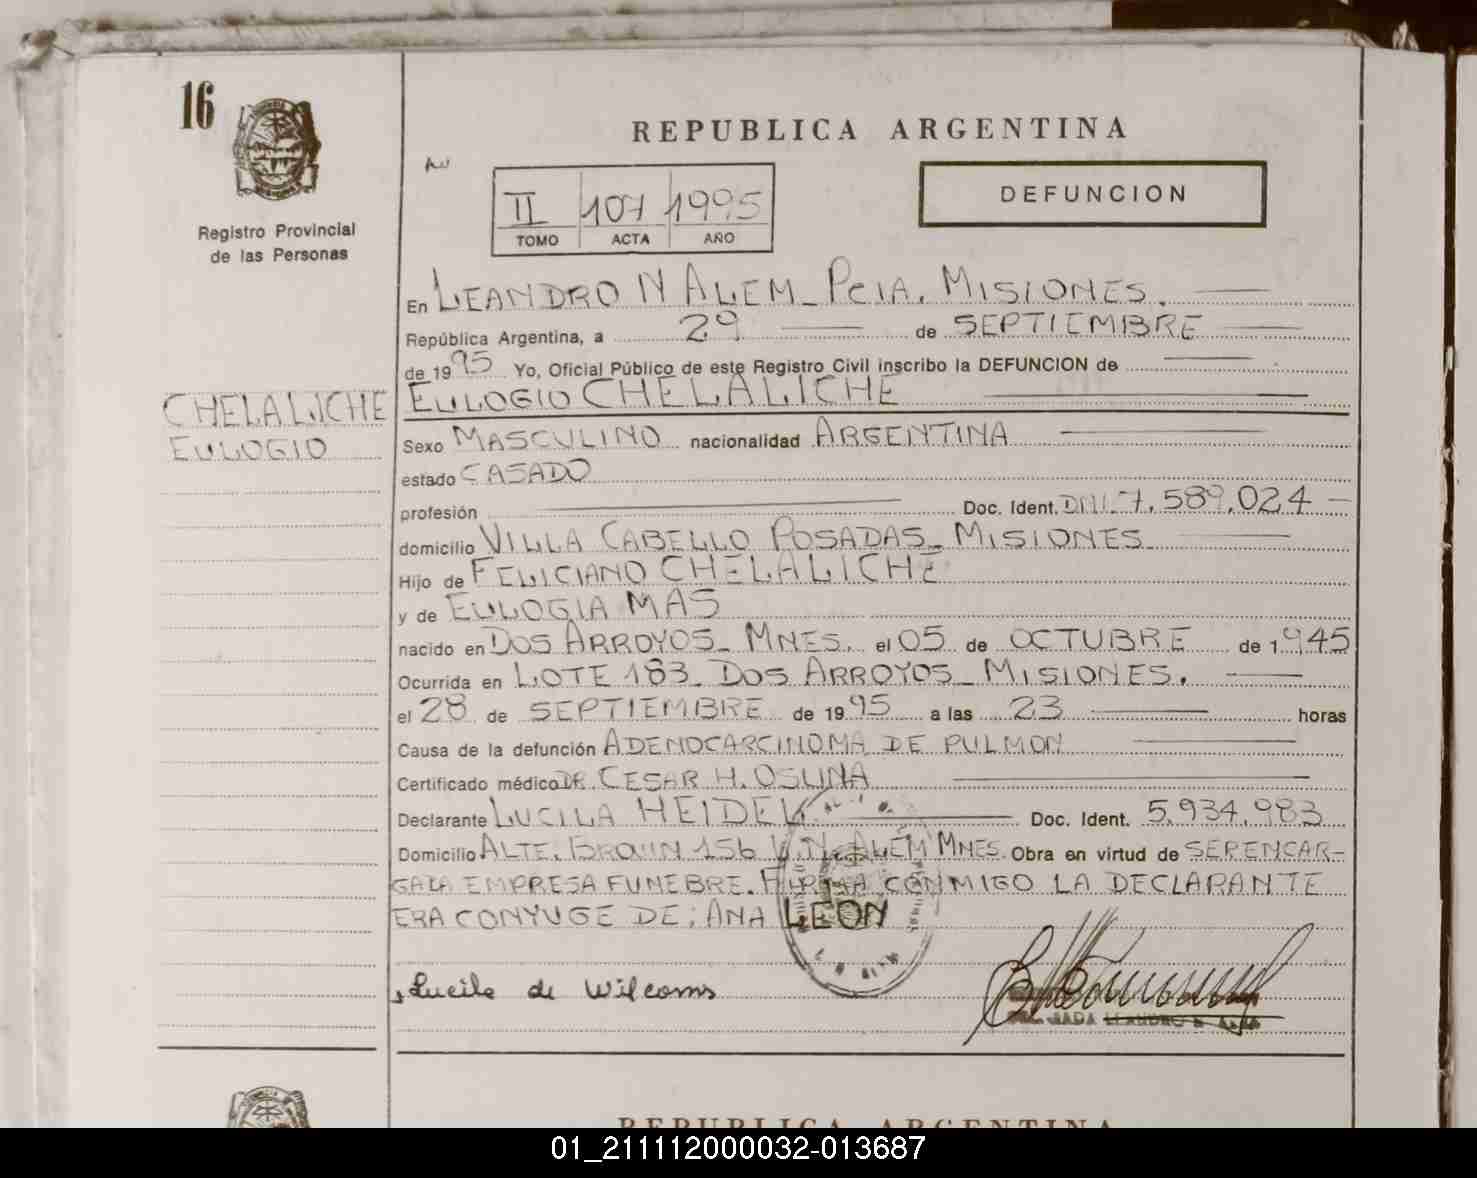 16
REPUBLICA ARGENTINA
II 107 1995
TOMO ACTA AÑO
DEFUNCION
Registro Provincial
de las Personas
En LEANDRO N ALEM_ PCIA. MISIONES.
República Argentina, a 29 de SEPTIEMBRE
de 1995 Yo, Oficial Público de este Registro Civil inscribo la DEFUNCION de
EULOGIO CHELALICHE
CHELALICHE
EULOGIO
Sexo MASCULINO nacionalidad ARGENTINA
estado CASADO
profesión Doc. Ident. DNI. 7.589.024
domicilio VILLA CABELLO POSADAS_ MISIONES
Hijo de FELICIANO CHELALICHE
y de EULOGIA MAS
nacido en DOS ARROYOS_ MNES. el 05 de OCTUBRE de 1945
Ocurrida en LOTE 183_ DOS ARROYOS_ MISIONES.
el 28 de SEPTIEMBRE de 1995 a las 23 horas
Causa de la defunción ADENOCARCINOMA DE PULMON
Certificado médico DR. CESAR H. OSUNA
Declarante LUCILA HEIDEL Doc. Ident. 5.934.983
Domicilio ALTE. BROWN 156 L.N. ALEM MNES. Obra en virtud de SER ENCAR-
GADA EMPRESA FUNEBRE. FIRMA CONMIGO LA DECLARANTE
ERA CONYUGE DE: ANA LEON
Lucila de Wilcoms
LEANDRO N. ALEM
REPUBLICA ARGENTINA
01_211112000032-013687